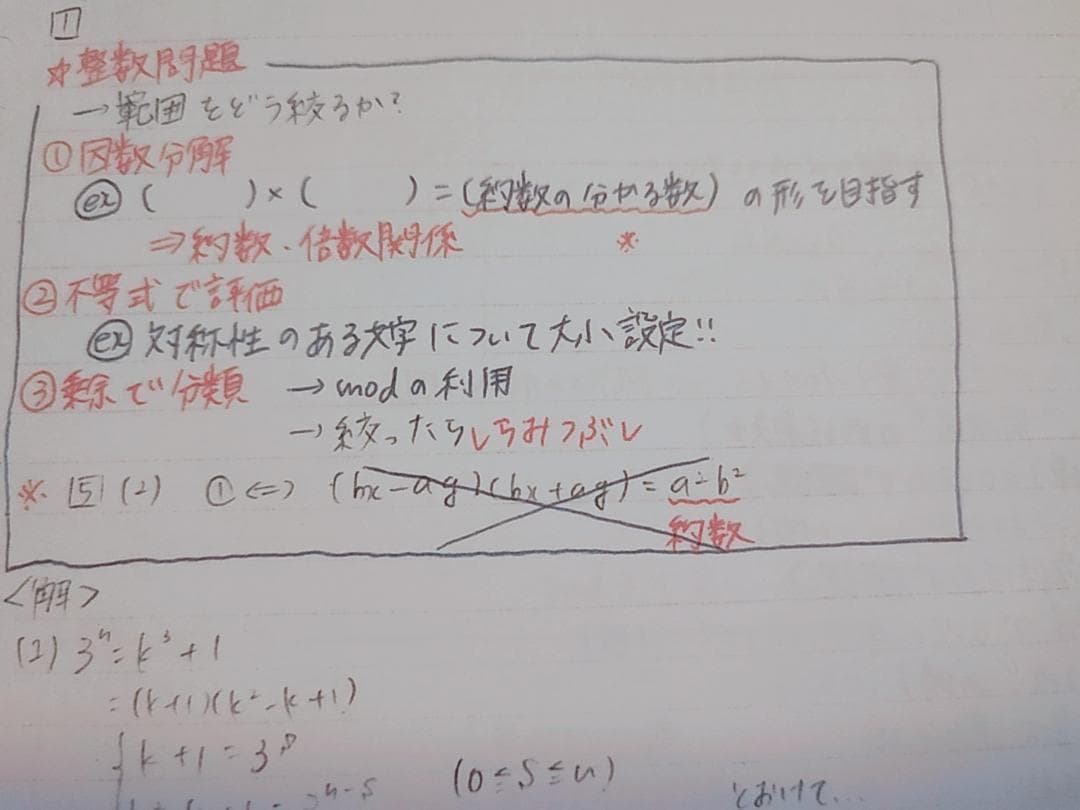 1
☆整数問題
→範囲をどう絞るか?
①因数分解
ex ( )×( )=(約数の分かる数) の形を目指す
⇒約数・倍数関係 ※
②不等式で評価
ex 対称性のある文字について大小設定!!
③剰余で分類 →modの利用
→絞ったらしらみつぶし
※ 5 (2) ①⇔ (bx-ay)(bx+ay)=a²-b²
約数
<解>
(2) 3ⁿ=k³+1
=(k+1)(k²-k+1)
k+1=3ˢ
(0≦s≦n)
とおけて...